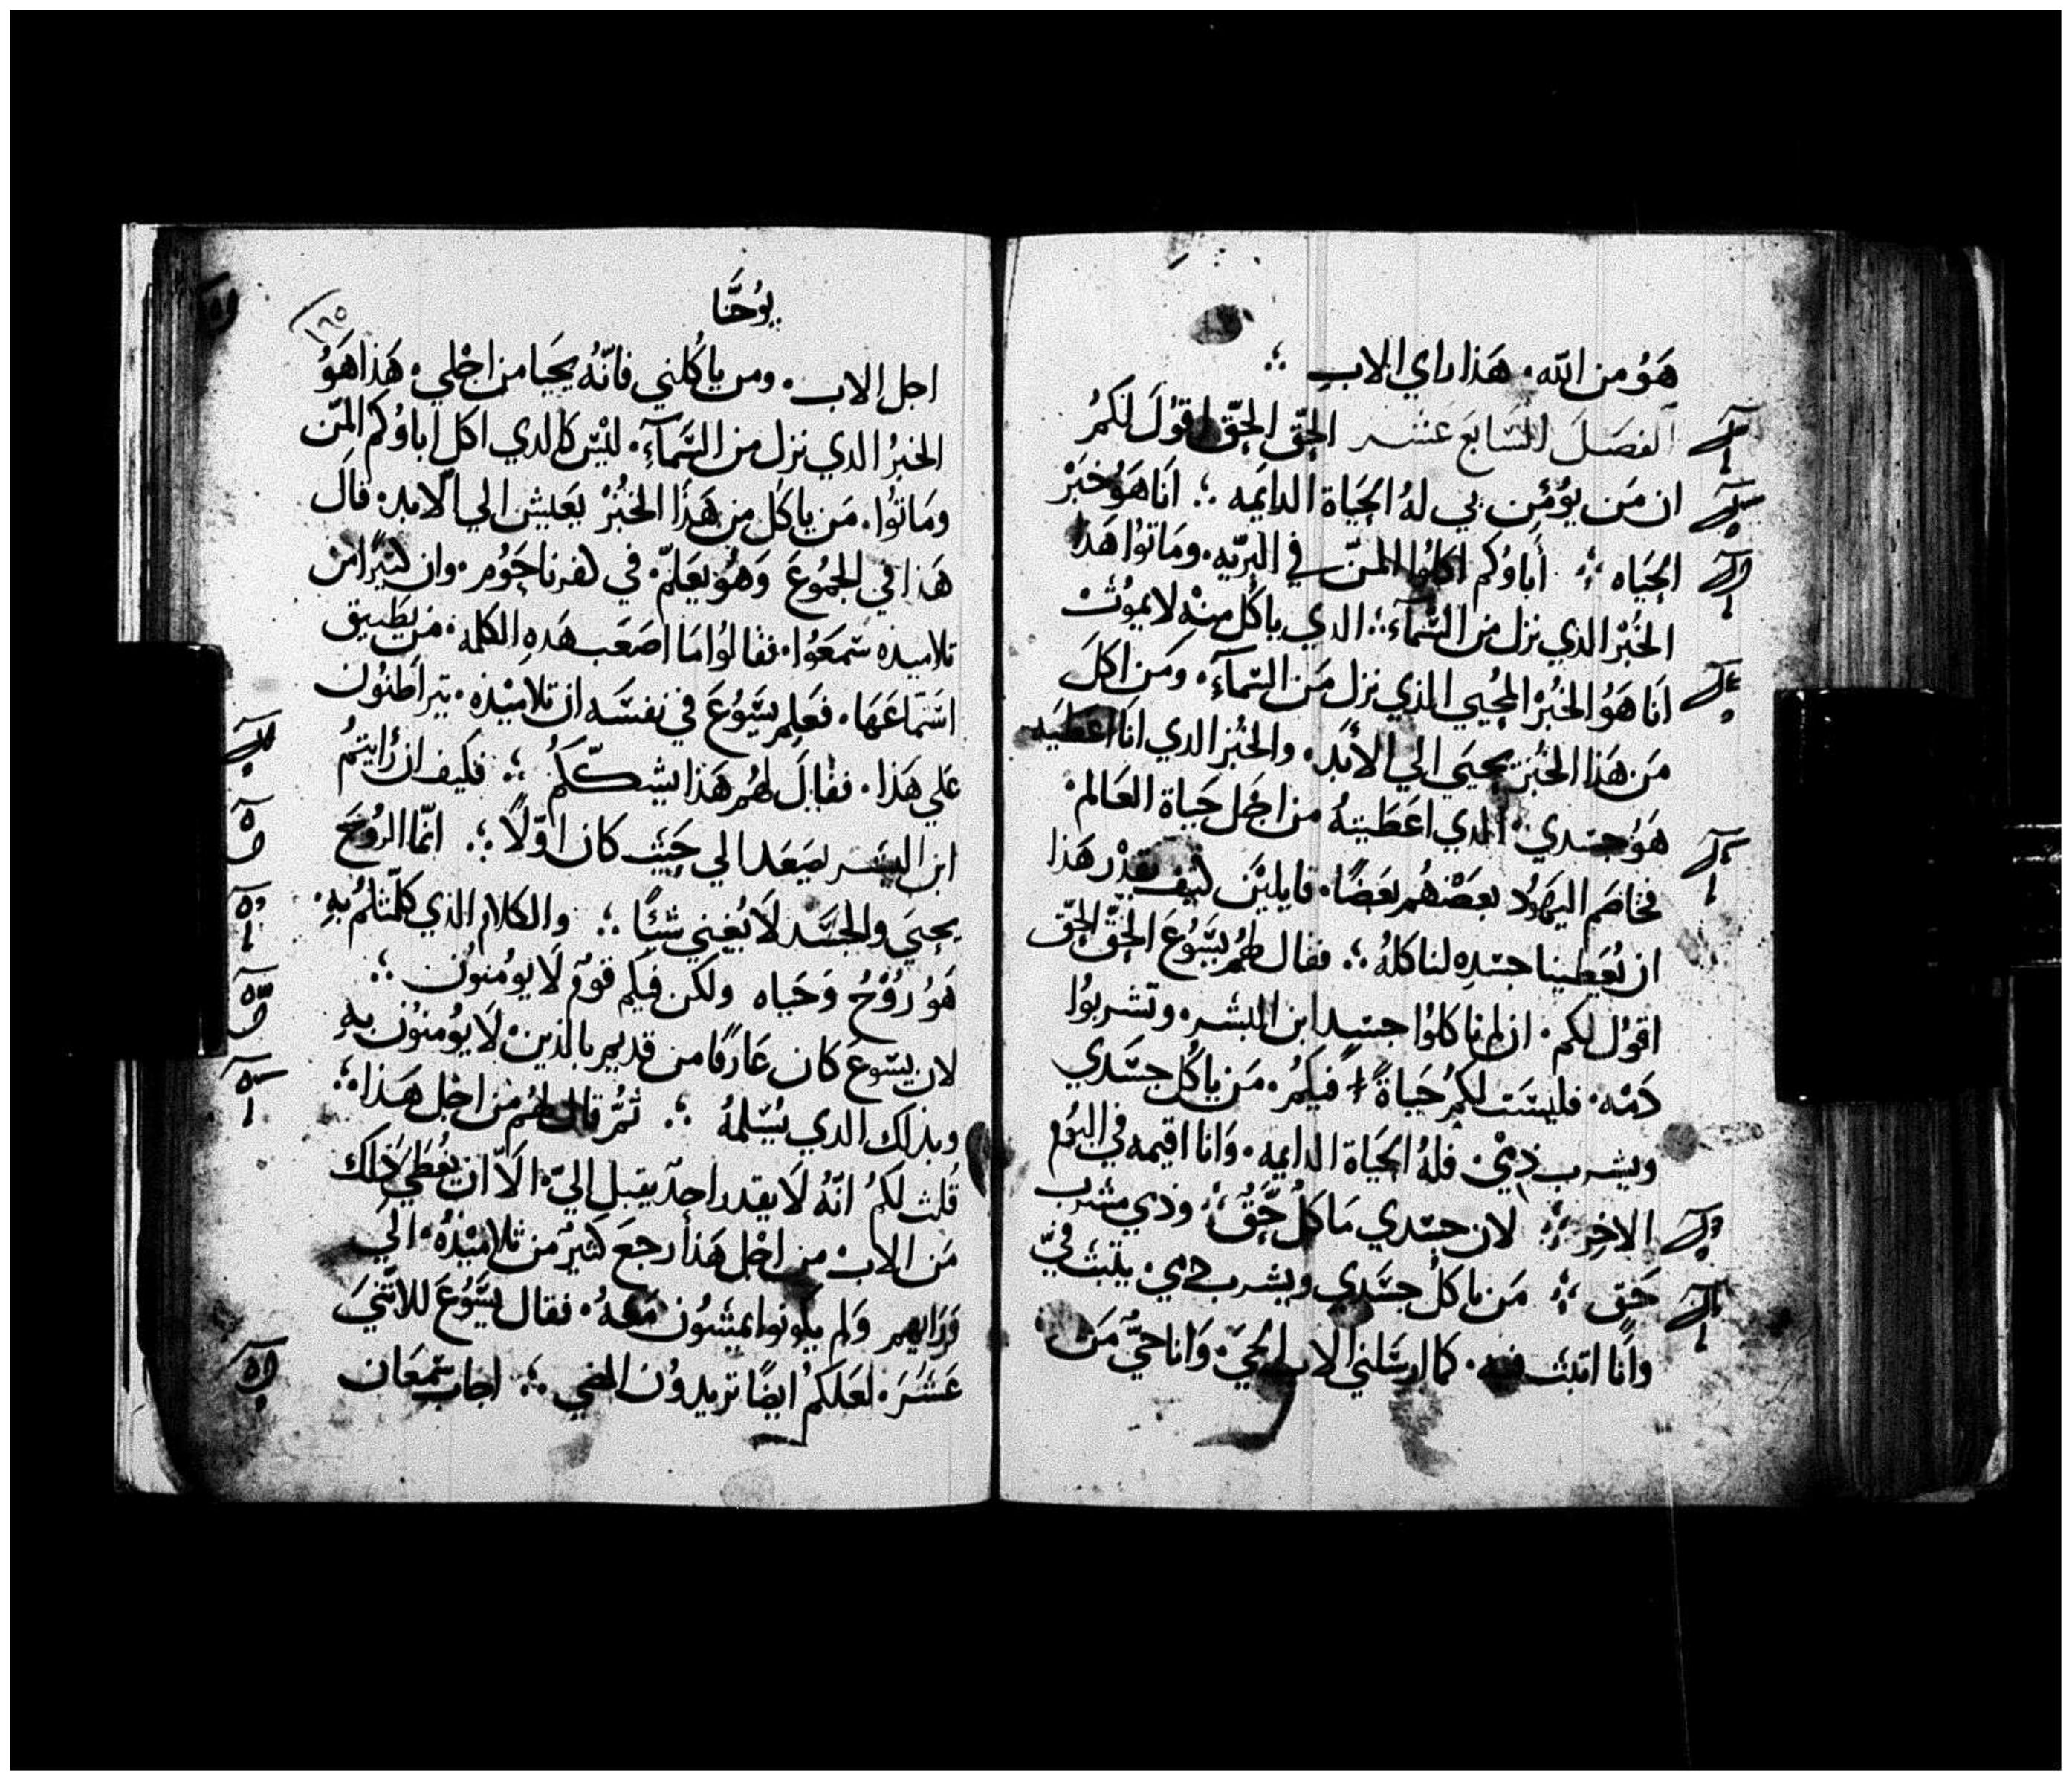 هَوُ من الله. هَذا راي الاب ؛
الفصَلَ السَّابعَ عَشر الحِقّ الحِقّ اقوُلَ لَكمُ
ان مَن يوُمِن بي لهُ الحَياة الدايمَه ؛ انَا هَوُ خبَزْ
الحيَاه ؛ أَباوُكم اكلوُا المنّ في البرّيه. ومَاتوُا هَذا
الخُبْز الذي نزل من السَّمآءِ ؛ الدي ياكُل منِهْ لا يموُتْ
انَا هَوُ الخُبْز المُحيي الذي نزل مَن السّمآءِ. ومَن اكلَ
مَن هَذا الخُبز يحيَى الي الأبَد. والخُبز الدي انَا اعطَيه
هَوُ جسَدي. الدي اعَطَيتهُ من اجَل حَياة العَالم.
فخاصَم اليَهوُد بعَضْهُم بعَضًا. قايليْن كيَف يقدْر هَذا
ان يُعَطينا جسَدِه لناكلهُ ؛ فقال لهُم يسَوُعَ الحِقّ الحِقّ
اقوُل لكم. ان لم تاكلوُا جسَد ابن البشر. وتشربوُا
دَمَه. فليسَت لكمُ حَياةً فيكمُ. مَن ياكُل جسَدي
ويشرب دَمي. فلهُ الحَياة الدايمه. وَانا اقيمه في اليَوُم
الاخِر ؛ لان جسَدي مَاكلُ حَّقُ ؛ ودَمي مشرب
حَق ؛ مَن ياكلُ جسَدي ويشرب دمي. يثبت فيّ
وأنا اثبُت فيه. كما ارسَلني الاب الحَيّ. وَانا حيٌّ مَن
يوُحَنَّا
١٦٥
اجل الاب. ومن ياكُلني فانّهُ يحيَا من اجْلي. هَذا هَوُ
الخبزُ الدي نزل من السَّمآءِ. ليْسَ كالدي اكل اباوُكم المَّن
ومَاتوُا. مَن ياكل من هَذا الخبُزْ يعَيش الي الابد. قالَ
هَذا في الجموُعَ وَهوُ يعَلمّ. في كفرناحَوُم. وان كثيرًا من
تلاميده سَمعَوُا. فقالوُا مَا اصَعَب هَدهِ الكلمه. من يطَيق
اسَتماعَهَا. فعَلِم يسَّوُعَ في نفسَه ان تلاميْذه. يتراطنوُن
علي هَذا. فقالَ لهُم هَذا يشكّكمُ ؛ فكيف ان رُايتمُ
ابن البشر يصَعَد الي حَيثُ كان اوّلاً ؛ انّما الروُحَ
يحيَي والجسَد لاَ يُغني شئًا ؛ والكلام الذي كلّمتكمُ بهِ.
هَوُ روُحُ وَحَياه ولكن فيكم قومُ لاَ يومُنونُ ؛
لان يسَوعَ كان عَارفًا من قديم بالذين لاَ يوُمنوُن بهِ
وبذلك الدي يُسَلمهُ ؛ ثمُّ قال لهُم من اجْل هَذا.
قُلت لكمُ انّهُ لاَ يقدر احدٌ يقبل اليّ. الاّ ان يُعَطَي ذلك
مَن الاب من اجْل هَذا رجعَ كثيرٌ من تلاميْذهُ. الي
وَرَايهم وَلم يكونوا يمشوُن مَعَهُ. فقال يسَّوُعَ للاثني
عَشَرَ. لعَلكمُ ايضًا تريدوُن المضي ؛ اجاب سَمعَان